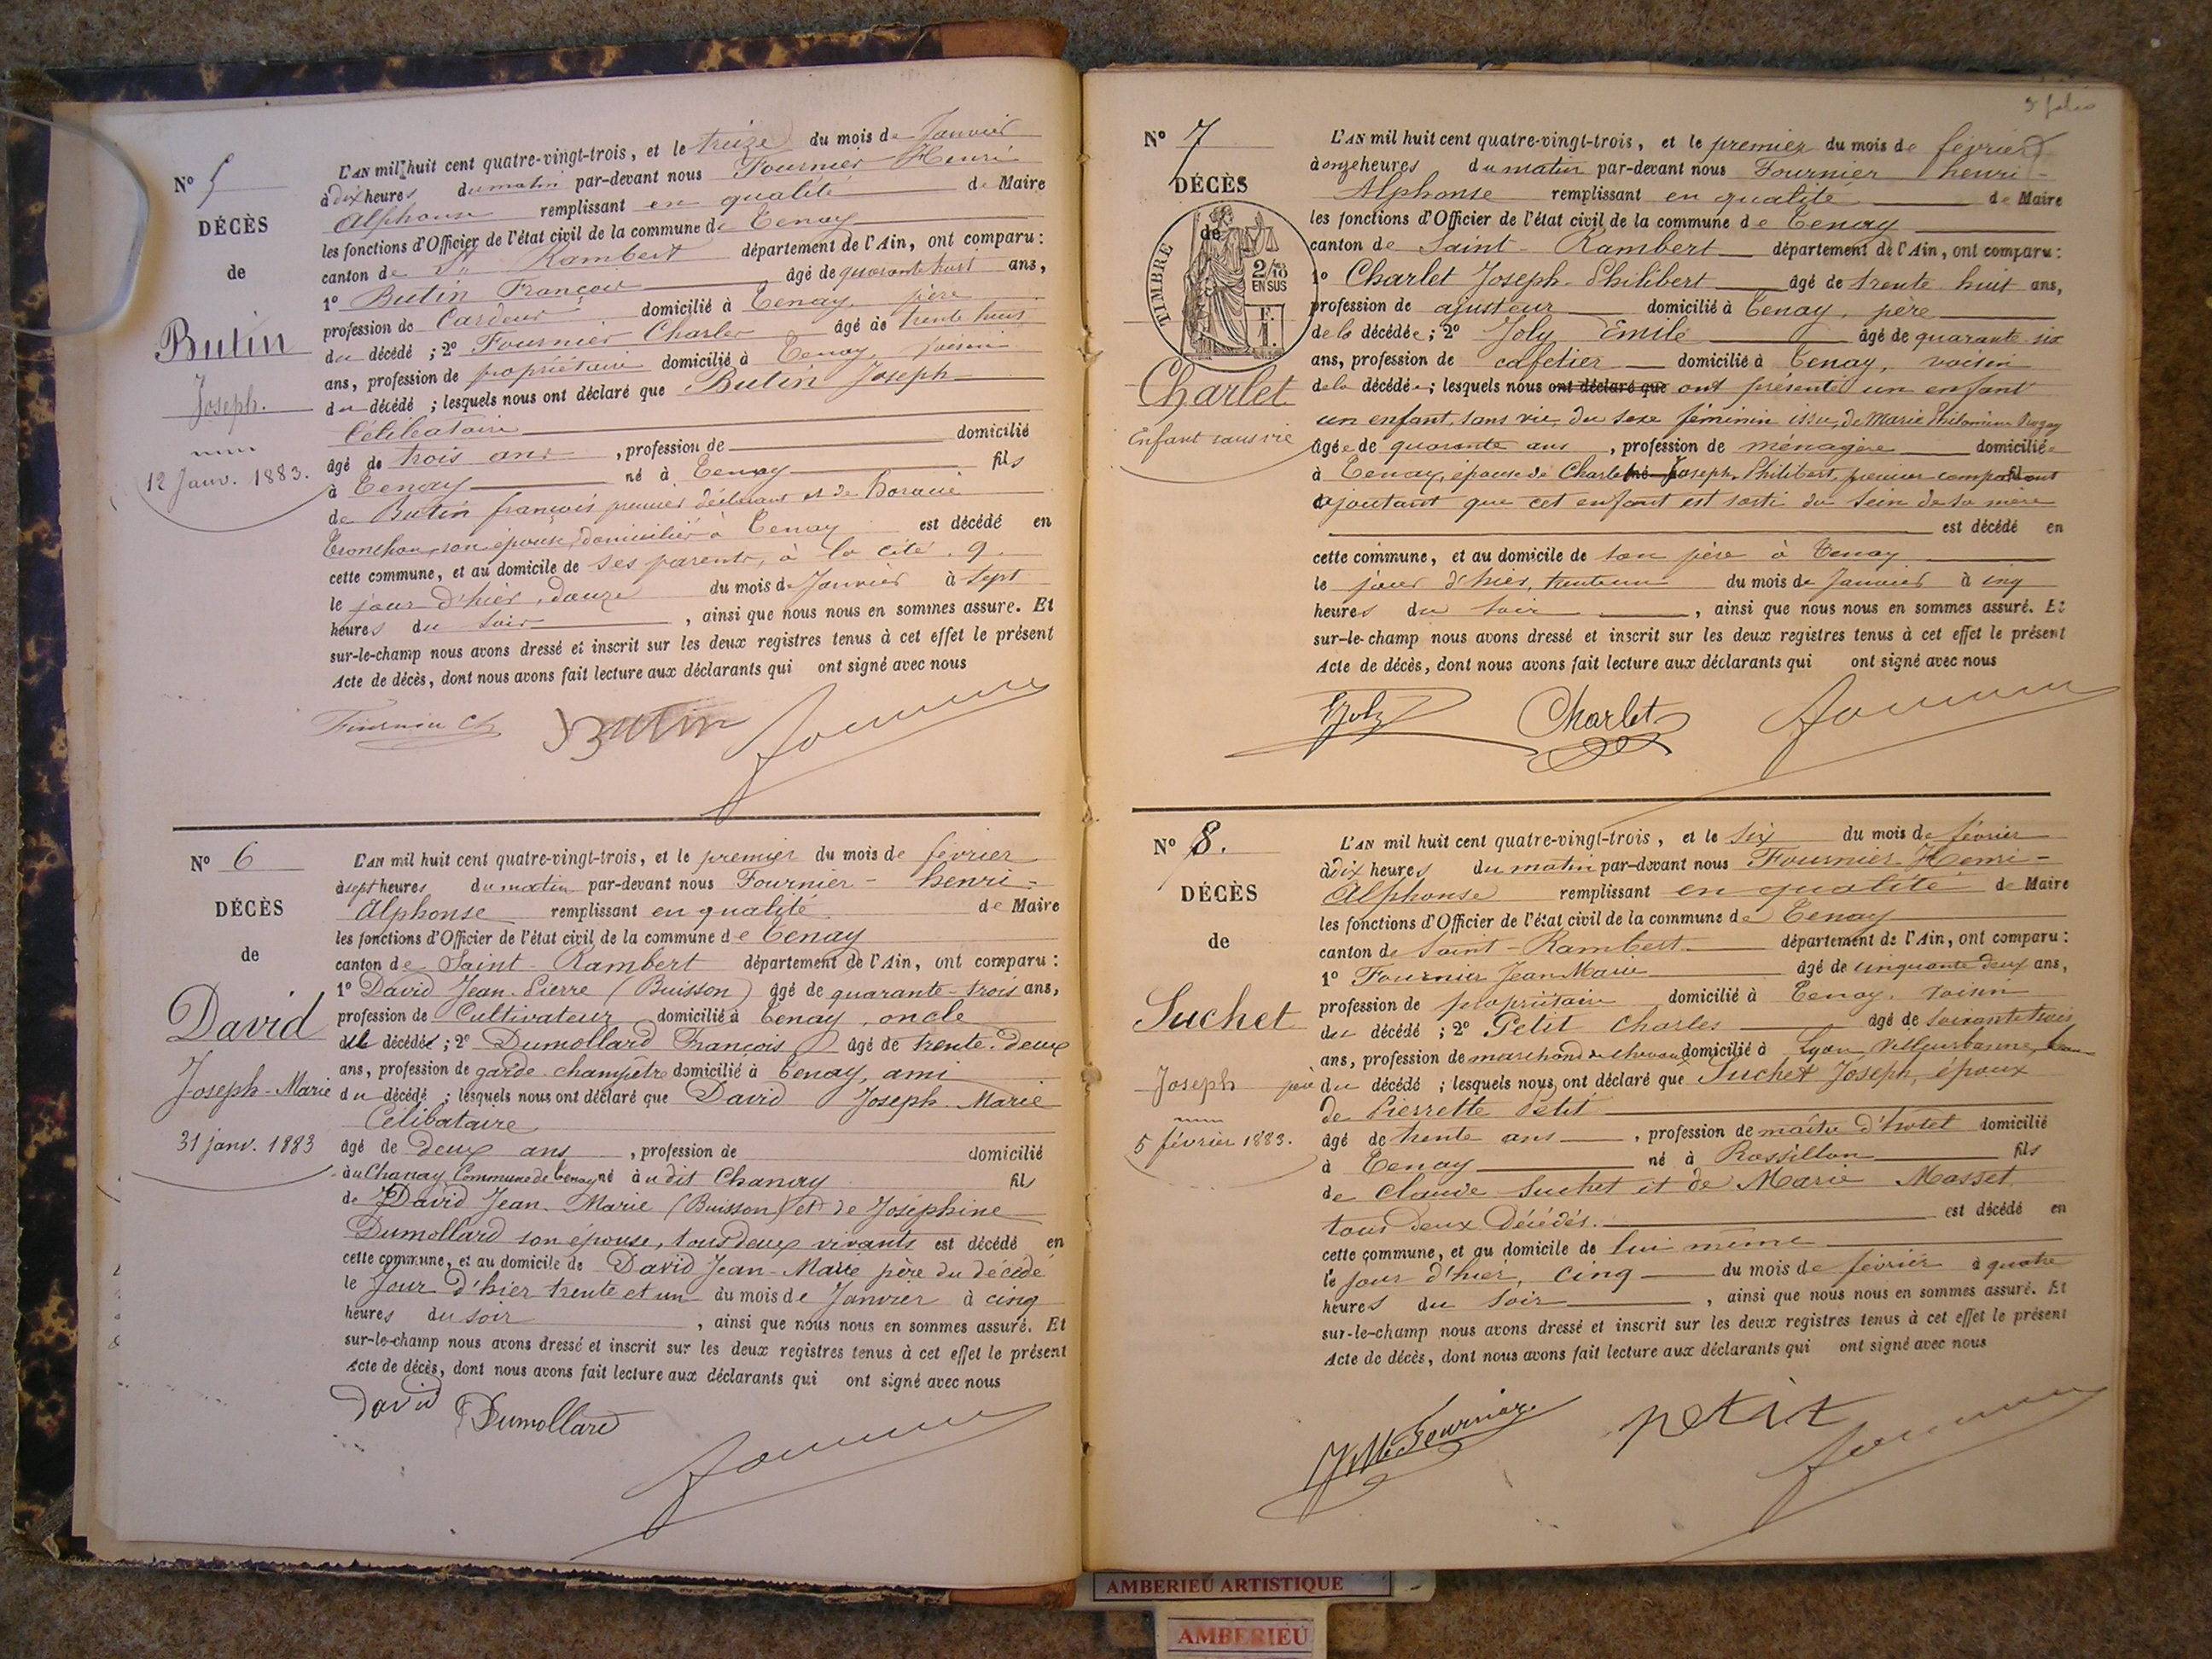 N° 5
DÉCÈS
de
Butin
Joseph.
12 Janv. 1883.
L'AN mil huit cent quatre-vingt-trois, et le treize du mois de Janvier
à dix heures du matin par-devant nous Fournier Henri
Alphonse remplissant en qualité de Maire
les fonctions d'Officier de l'état civil de la commune de Tenay
canton de St Rambert département de l'Ain, ont comparu :
1° Butin François âgé de quarante trois ans,
profession de Cardeur domicilié à Tenay, père
du décédé ; 2° Fournier Charles âgé de trente huit
ans, profession de propriétaire domicilié à Tenay, voisin
du décédé ; lesquels nous ont déclaré que Butin Joseph
Célibataire
âgé de trois ans , profession de domicilié
à Tenay né à Tenay fils
de Butin françois premier déclarant et de
Tronchon, son épouse, domiciliés à Tenay est décédé en
cette commune, et au domicile de ses parents, à la cité . 9 .
le jour d'hier, douze du mois de Janvier à sept
heures du soir , ainsi que nous nous en sommes assuré. Et
sur-le-champ nous avons dressé et inscrit sur les deux registres tenus à cet effet le présent
Acte de décès, dont nous avons fait lecture aux déclarants qui ont signé avec nous
Fournier Ch Butin
N° 6
DÉCÈS
de
David
Joseph-Marie
31 janv. 1883
L'AN mil huit cent quatre-vingt-trois, et le premier du mois de février
à sept heures du matin par-devant nous Fournier - henri -
Alphonse remplissant en qualité de Maire
les fonctions d'Officier de l'état civil de la commune de Tenay
canton de Saint-Rambert département de l'Ain, ont comparu :
1° David Jean-Pierre (Buisson) âgé de quarante-trois ans,
profession de Cultivateur domicilié à Tenay, oncle
du décédé ; 2° Dumollard François âgé de trente-deux
ans, profession de garde-champêtre domicilié à Tenay, ami
du décédé ; lesquels nous ont déclaré que David Joseph-Marie
Célibataire
âgé de Deux ans , profession de domicilié
à au Chanay Commune de Tenay né à u dit Chanay fils
de David Jean-Marie (Buisson) et de Joséphine
Dumollard son épouse, tous deux vivants est décédé en
cette commune, et au domicile de David Jean-Marie père du décédé
le Jour d'hier trente et un du mois de Janvier à cinq
heures du soir , ainsi que nous nous en sommes assuré. Et
sur-le-champ nous avons dressé et inscrit sur les deux registres tenus à cet effet le présent
Acte de décès, dont nous avons fait lecture aux déclarants qui ont signé avec nous
David Dumollard
N° 7
DÉCÈS
de
TIMBRE
2/10
EN SUS
Charlet
Enfant sans vie
L'AN mil huit cent quatre-vingt-trois, et le premier du mois de février
à onze heures du matin par-devant nous Fournier henri-
Alphonse remplissant en qualité de Maire
les fonctions d'Officier de l'état civil de la commune de Tenay
canton de Saint-Rambert département de l'Ain, ont comparu :
1° Charlet Joseph-Philibert âgé de trente huit ans,
profession de ajusteur domicilié à Tenay, père
de la décédée ; 2° Joly Emile âgé de quarante six
ans, profession de cafetier domicilié à Tenay, voisin
de la décédée ; lesquels nous ont déclaré que ont présenté un enfant
un enfant, sans vie, du sexe féminin issu de Marie Philomène
âgée de quarante ans , profession de ménagère domiciliée
à Tenay, épouse de Charlet né Joseph-Philibert, premier comparant fil
ajoutant que cet enfant est sorti du sein de sa mère
est décédé en
cette commune, et au domicile de son père à Tenay
le jour d'hier, trente un du mois de Janvier à cinq
heures du soir , ainsi que nous nous en sommes assuré. Et
sur-le-champ nous avons dressé et inscrit sur les deux registres tenus à cet effet le présent
Acte de décès, dont nous avons fait lecture aux déclarants qui ont signé avec nous
EJoly Charlet
N° 8.
DÉCÈS
de
Suchet
Joseph
5 février 1883.
L'AN mil huit cent quatre-vingt-trois, et le six du mois de février
à dix heures du matin par-devant nous Fournier-Henri-
Alphonse remplissant en qualité de Maire
les fonctions d'Officier de l'état civil de la commune de Tenay
canton de Saint-Rambert département de l'Ain, ont comparu :
1° Fournier Jean Marie âgé de cinquante deux ans,
profession de propriétaire domicilié à Tenay. voisin
du décédé ; 2° Petit Charles âgé de soixante trois
ans, profession de marchand de chevaux domicilié à Lyon Villeurbanne, beau
père du décédé ; lesquels nous ont déclaré que Suchet Joseph, époux
de Pierrette Petit
âgé de trente ans , profession de maître d'hotel domicilié
à Tenay né à Rossillon fils
de Claude Suchet et de Marie Masset,
tous deux décédés. est décédé en
cette commune, et au domicile de lui même
le jour d'hier, cinq du mois de février à quatre
heures du soir , ainsi que nous nous en sommes assuré. Et
sur-le-champ nous avons dressé et inscrit sur les deux registres tenus à cet effet le présent
Acte de décès, dont nous avons fait lecture aux déclarants qui ont signé avec nous
JM Fournier petit
AMBERIEU ARTISTIQUE
AMBERIEU